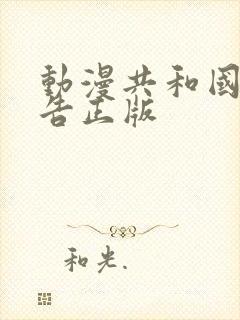 動漫共和國
告正版
和光.